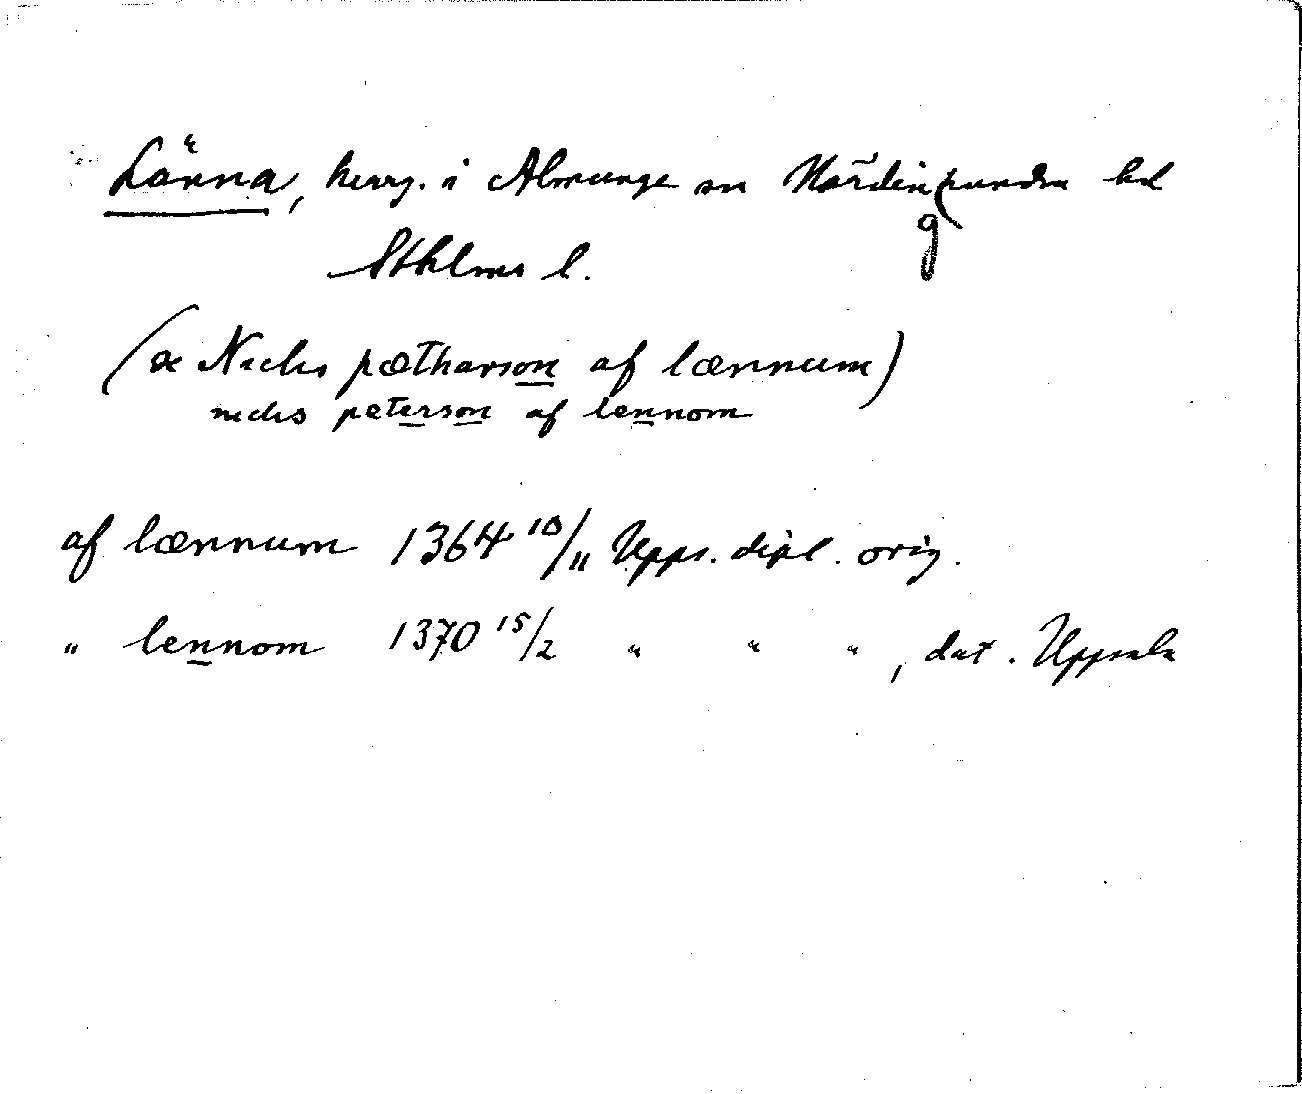 Länna, herrg. i Almunge sn Närdinghundra hd
Sthlms l.
(æ Niclis pætharson af lænnum)
niclis peterson af lennom
af lænnum 1364 10/11 Upps. dipl. orig.
" lennom 1370 15/2 " " " , dat. Uppsala